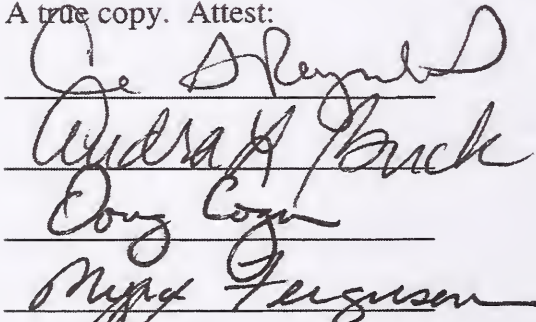 A true copy. Attest:
Joe D Reynolds
Audra K Buck
Doug Cogan
Ferguson